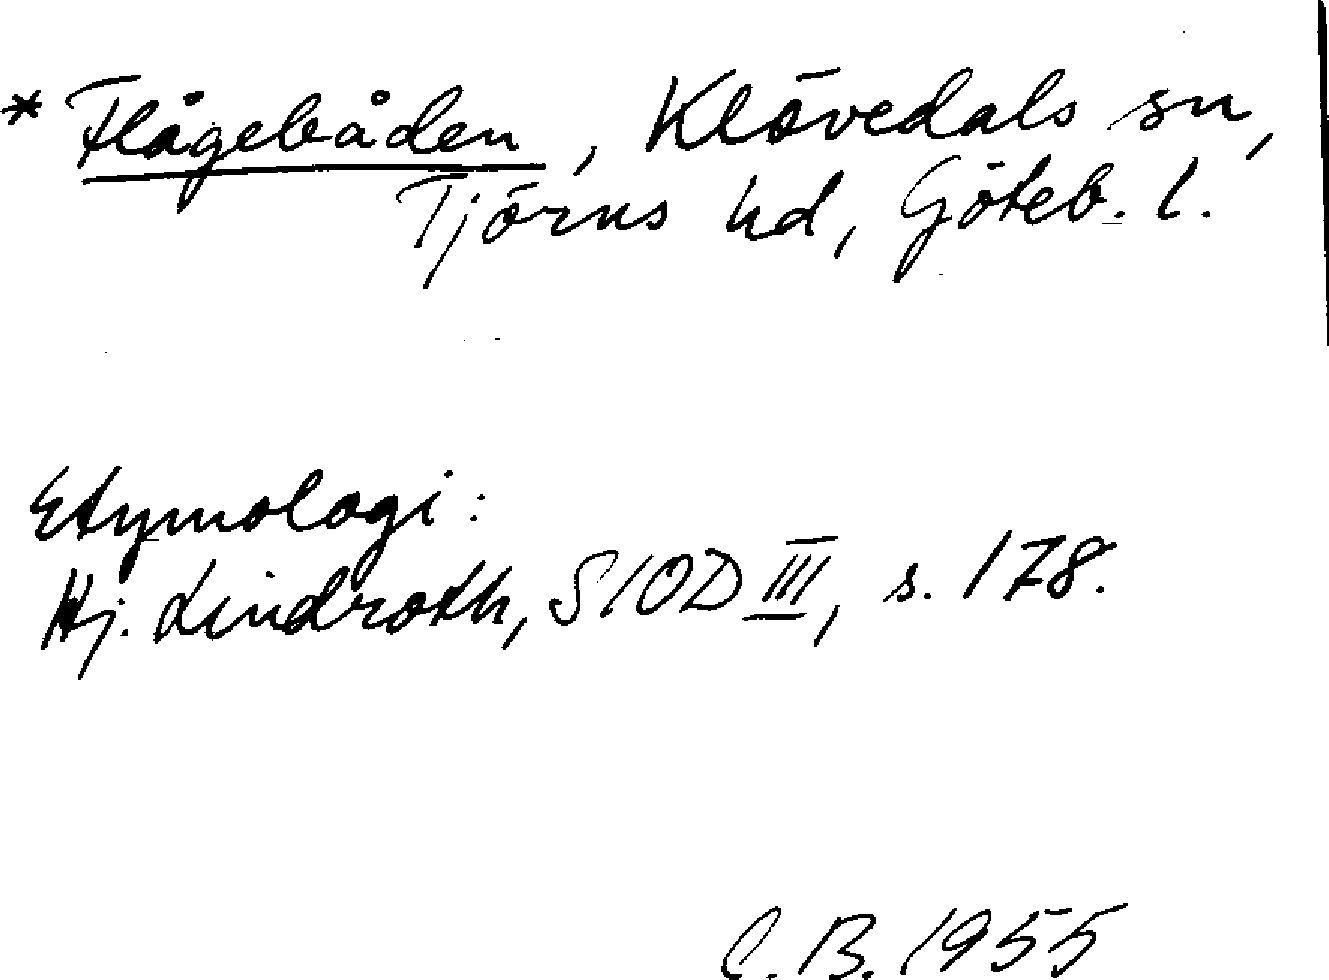 * Flågebåden, Klövedals sn,
Tjörns hd, Göteb. l.
Etymologi:
Hj. Lindroth, SIOD III, s. 178.
C.B. 1955